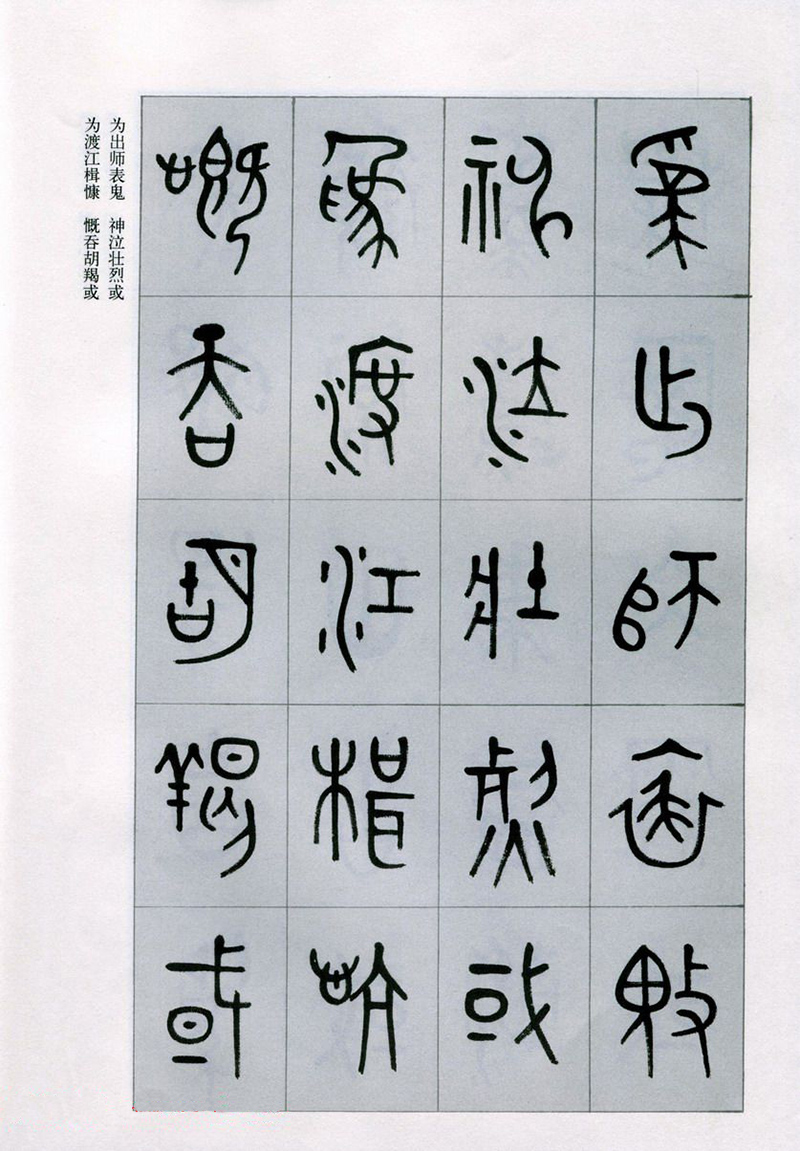 為出師表鬼
神泣壯烈或
為渡江楫慷
慨吞胡羯或
为出师表鬼 神泣壮烈或
为渡江楫慷 慨吞胡羯或